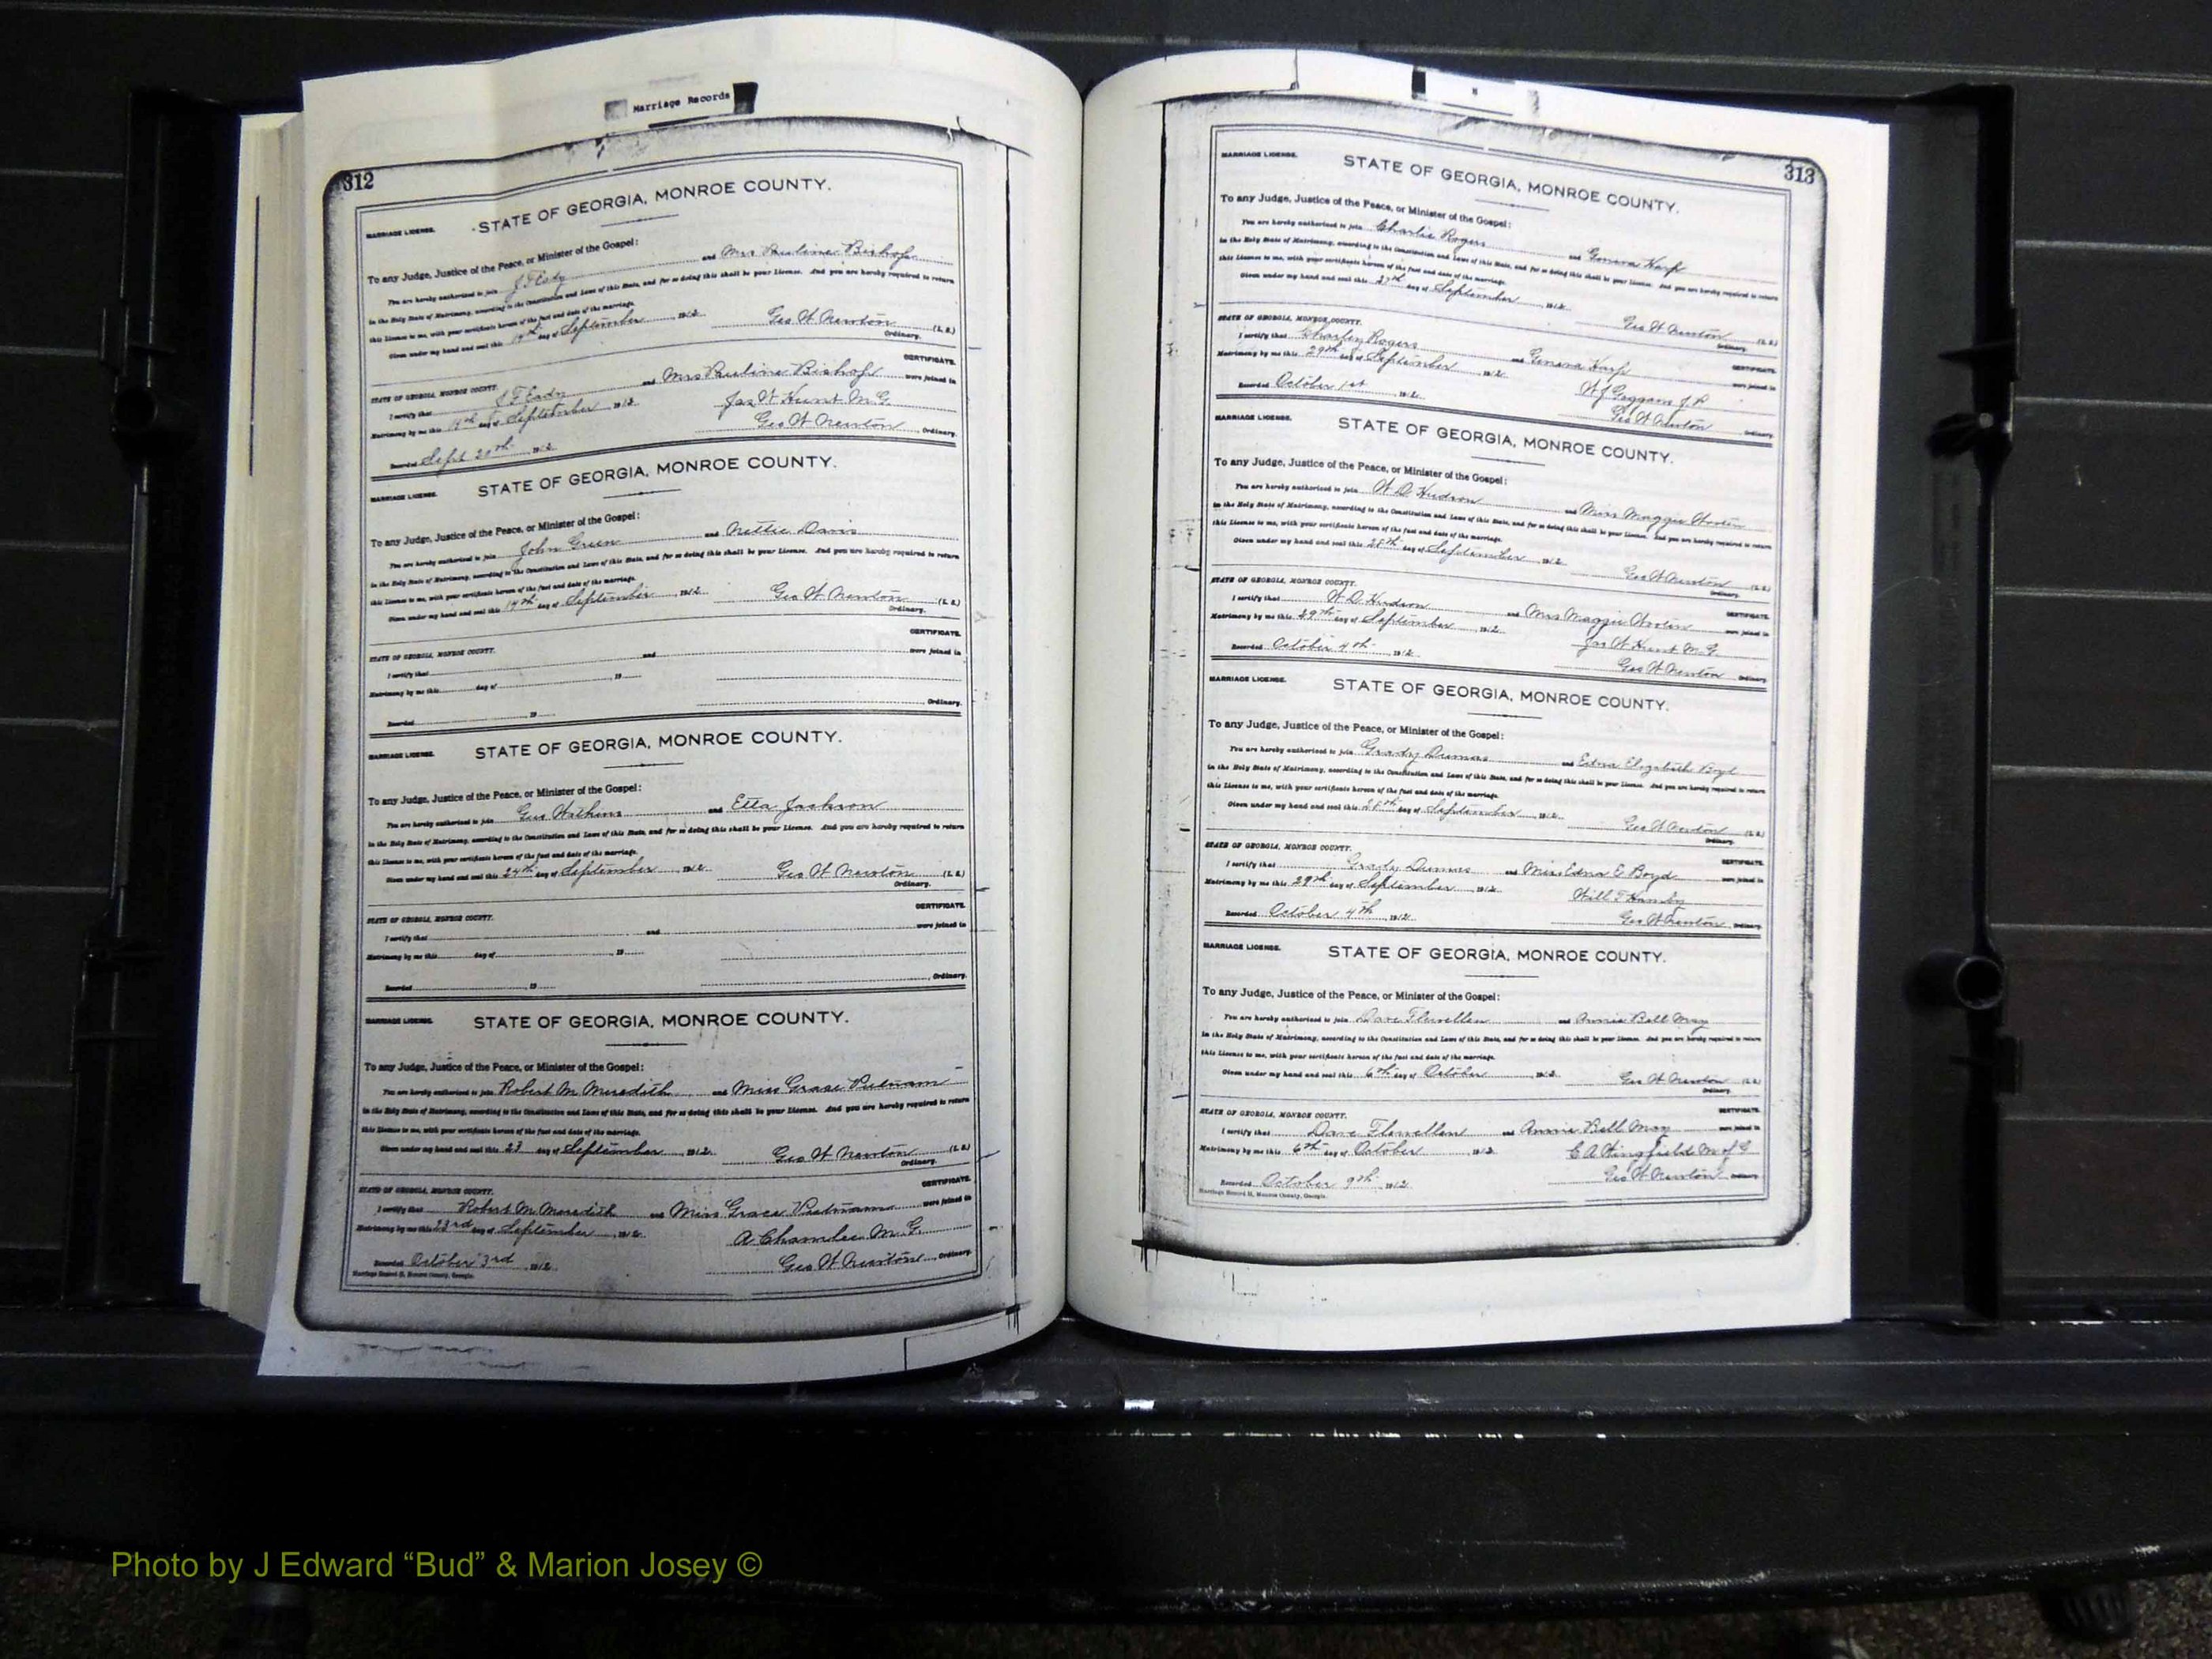 Marriage Records
312
MARRIAGE LICENSE.
STATE OF GEORGIA, MONROE COUNTY.
To any Judge, Justice of the Peace, or Minister of the Gospel:
You are hereby authorized to join J F Eady and Mrs Pauline Bishop
in the Holy State of Matrimony, according to the Constitution and Laws of this State, and for so doing this shall be your License. And you are hereby required to return
this License to me, with your certificate hereon of the fact and date of the marriage.
Given under my hand and seal this 19th day of September, 1912. Geo W Newton (L. S.)
Ordinary.
CERTIFICATE.
STATE OF GEORGIA, MONROE COUNTY.
I certify that J F Eady and Mrs Pauline Bishop were joined in
Matrimony by me this 19th day of September 1912. Jas W Hunt M.G.
Recorded Sept 20th 1912 Geo W Newton, Ordinary.
MARRIAGE LICENSE.
STATE OF GEORGIA, MONROE COUNTY.
To any Judge, Justice of the Peace, or Minister of the Gospel:
You are hereby authorized to join John Green and Nettie Davis
in the Holy State of Matrimony, according to the Constitution and Laws of this State, and for so doing this shall be your License. And you are hereby required to return
this License to me, with your certificate hereon of the fact and date of the marriage.
Given under my hand and seal this 19th day of September, 1912. Geo W Newton (L. S.)
Ordinary.
CERTIFICATE.
STATE OF GEORGIA, MONROE COUNTY.
I certify that and were joined in
Matrimony by me this day of , 19
Recorded , 19 , Ordinary.
MARRIAGE LICENSE.
STATE OF GEORGIA, MONROE COUNTY.
To any Judge, Justice of the Peace, or Minister of the Gospel:
You are hereby authorized to join Gus Watkins and Etta Jackson
in the Holy State of Matrimony, according to the Constitution and Laws of this State, and for so doing this shall be your License. And you are hereby required to return
this License to me, with your certificate hereon of the fact and date of the marriage.
Given under my hand and seal this 24th day of September, 1912. Geo W Newton (L. S.)
Ordinary.
CERTIFICATE.
STATE OF GEORGIA, MONROE COUNTY.
I certify that and were joined in
Matrimony by me this day of , 19
Recorded , 19 , Ordinary.
MARRIAGE LICENSE.
STATE OF GEORGIA, MONROE COUNTY.
To any Judge, Justice of the Peace, or Minister of the Gospel:
You are hereby authorized to join Robert M Meredith and Miss Grace Putnam
in the Holy State of Matrimony, according to the Constitution and Laws of this State, and for so doing this shall be your License. And you are hereby required to return
this License to me, with your certificate hereon of the fact and date of the marriage.
Given under my hand and seal this 23 day of September, 1912. Geo W Newton (L. S.)
Ordinary.
CERTIFICATE.
STATE OF GEORGIA, MONROE COUNTY.
I certify that Robert M Meredith and Miss Grace Putnam were joined in
Matrimony by me this 23rd day of September, 1912. A Chamlee M.G.
Recorded October 3rd 1912 Geo W Newton, Ordinary.
Marriage Record H, Monroe County, Georgia.
313
MARRIAGE LICENSE.
STATE OF GEORGIA, MONROE COUNTY.
To any Judge, Justice of the Peace, or Minister of the Gospel:
You are hereby authorized to join Charlie Rogers and Geneva Harp
in the Holy State of Matrimony, according to the Constitution and Laws of this State, and for so doing this shall be your License. And you are hereby required to return
this License to me, with your certificate hereon of the fact and date of the marriage.
Given under my hand and seal this 27th day of September, 1912. Geo W Newton (L. S.)
Ordinary.
CERTIFICATE.
STATE OF GEORGIA, MONROE COUNTY.
I certify that Charley Rogers and Geneva Harp were joined in
Matrimony by me this 29th day of September, 1912. W J Goggans J.P.
Recorded October 1st, 1912. Geo W Newton Ordinary.
MARRIAGE LICENSE.
STATE OF GEORGIA, MONROE COUNTY.
To any Judge, Justice of the Peace, or Minister of the Gospel:
You are hereby authorized to join W D Hudson and Miss Maggie
in the Holy State of Matrimony, according to the Constitution and Laws of this State, and for so doing this shall be your License. And you are hereby required to return
this License to me, with your certificate hereon of the fact and date of the marriage.
Given under my hand and seal this 28th day of September, 1912. Geo W Newton (L. S.)
Ordinary.
CERTIFICATE.
STATE OF GEORGIA, MONROE COUNTY.
I certify that W D Hudson and Mrs Maggie were joined in
Matrimony by me this 29th day of September, 1912. Jas W Hunt M.G.
Recorded October 4th, 1912. Geo W Newton Ordinary.
MARRIAGE LICENSE.
STATE OF GEORGIA, MONROE COUNTY.
To any Judge, Justice of the Peace, or Minister of the Gospel:
You are hereby authorized to join Grady Dumas and Edna Elizabeth Boyd
in the Holy State of Matrimony, according to the Constitution and Laws of this State, and for so doing this shall be your License. And you are hereby required to return
this License to me, with your certificate hereon of the fact and date of the marriage.
Given under my hand and seal this 28th day of September, 1912. Geo W Newton (L. S.)
Ordinary.
CERTIFICATE.
STATE OF GEORGIA, MONROE COUNTY.
I certify that Grady Dumas and Miss Edna E Boyd were joined in
Matrimony by me this 29th day of September, 1912. Will T Hamby
Recorded October 4th, 1912. Geo W Newton, Ordinary.
MARRIAGE LICENSE.
STATE OF GEORGIA, MONROE COUNTY.
To any Judge, Justice of the Peace, or Minister of the Gospel:
You are hereby authorized to join Dave Flewellen and Annie Bell May
in the Holy State of Matrimony, according to the Constitution and Laws of this State, and for so doing this shall be your License. And you are hereby required to return
this License to me, with your certificate hereon of the fact and date of the marriage.
Given under my hand and seal this 6th day of October, 1912. Geo W Newton (L. S.)
Ordinary.
CERTIFICATE.
STATE OF GEORGIA, MONROE COUNTY.
I certify that Dave Flewellen and Annie Bell May were joined in
Matrimony by me this 6th day of October, 1912. C A Wingfield M of G
Recorded October 9th 1912 Geo W Newton Ordinary.
Marriage Record H, Monroe County, Georgia.
Photo by J Edward “Bud” & Marion Josey ©